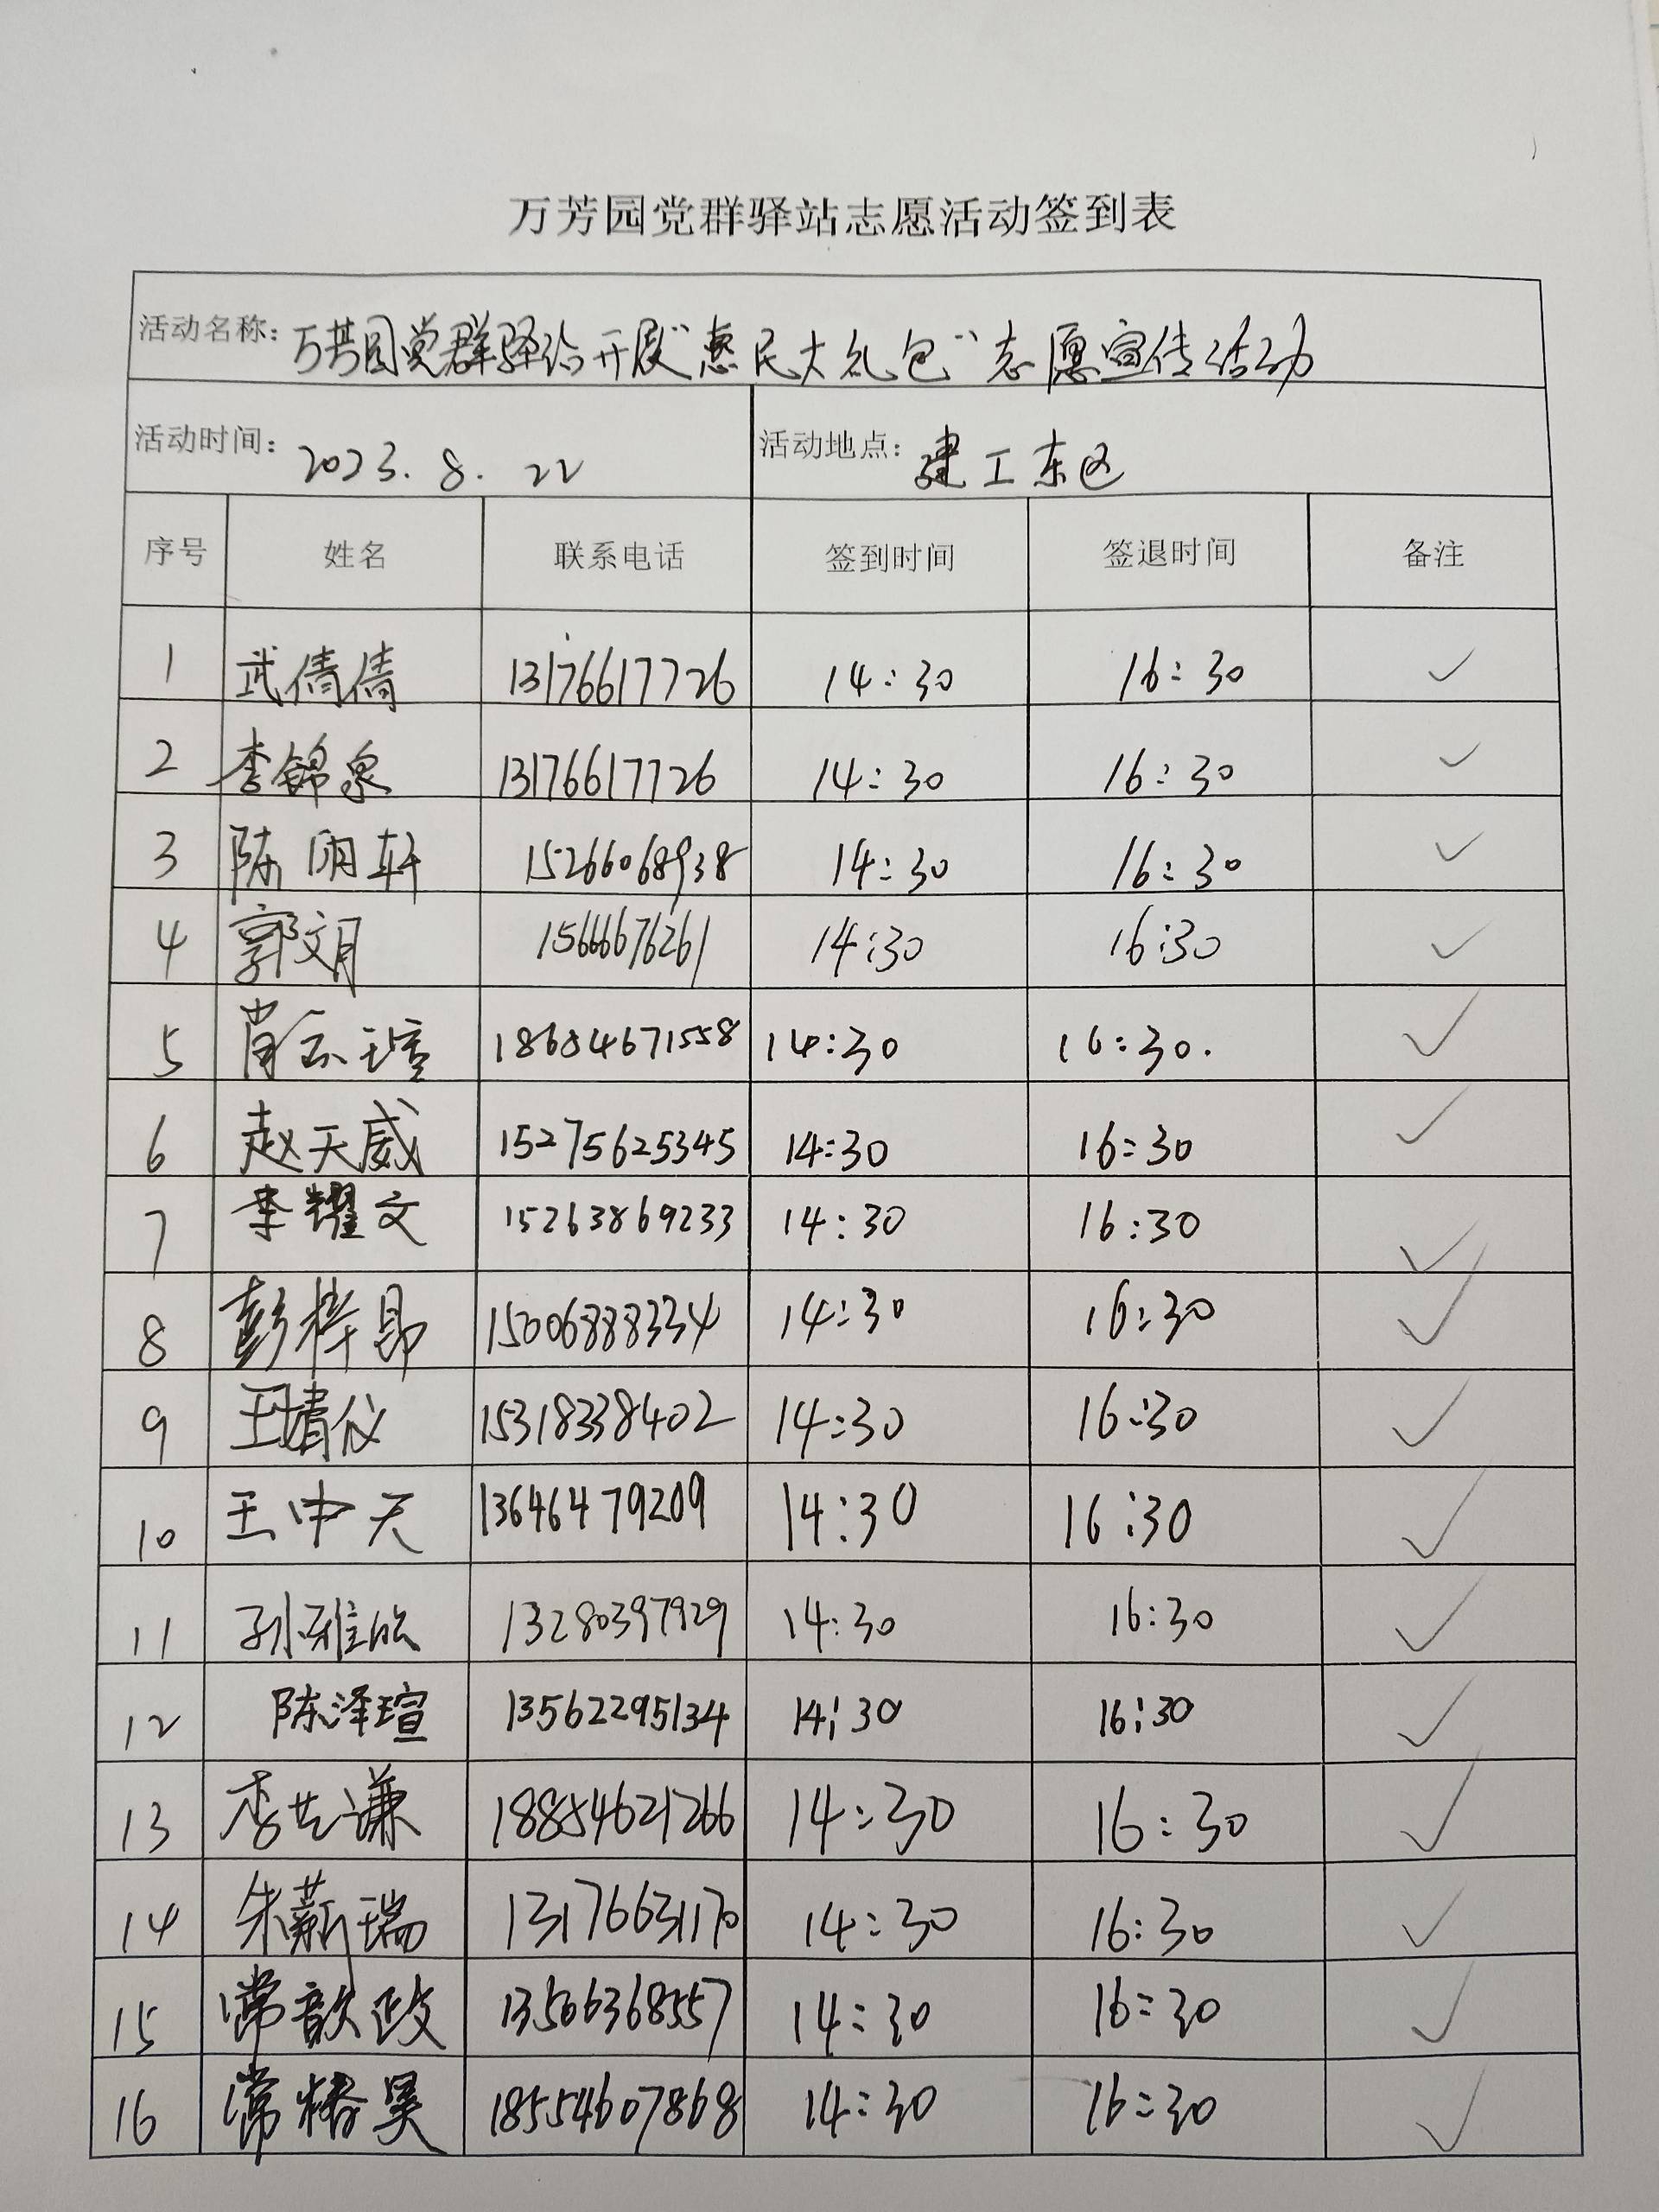 万芳园党群驿站志愿活动签到表
活动名称: 万芳园党群驿站开展"惠民大礼包"志愿宣传活动
活动时间: 2023.8.22 活动地点: 建工东区
序号 姓名 联系电话 签到时间 签退时间 备注
1 武倩倩 13176617726 14:30 16:30 ✓
2 李锦泉 13176617726 14:30 16:30 ✓
3 陈明轩 15266068938 14:30 16:30 ✓
4 郭文月 15666676261 14:30 16:30 ✓
5 肖云瑄 18684671558 14:30 16:30. ✓
6 赵天威 15275625345 14:30 16:30 ✓
7 李耀文 15263869233 14:30 16:30 ✓
8 彭梓昂 15006888334 14:30 16:30 ✓
9 王婧仪 15318338402 14:30 16:30 ✓
10 王中天 13646479209 14:30 16:30 ✓
11 孙雅欣 13280397929 14:30 16:30 ✓
12 陈泽瑄 13562295134 14:30 16:30 ✓
13 李共谦 18854621266 14:30 16:30 ✓
14 朱薪瑞 13176631170 14:30 16:30 ✓
15 常歆政 13506368557 14:30 16:30 ✓
16 常椿昊 18554607868 14:30 16:30 ✓